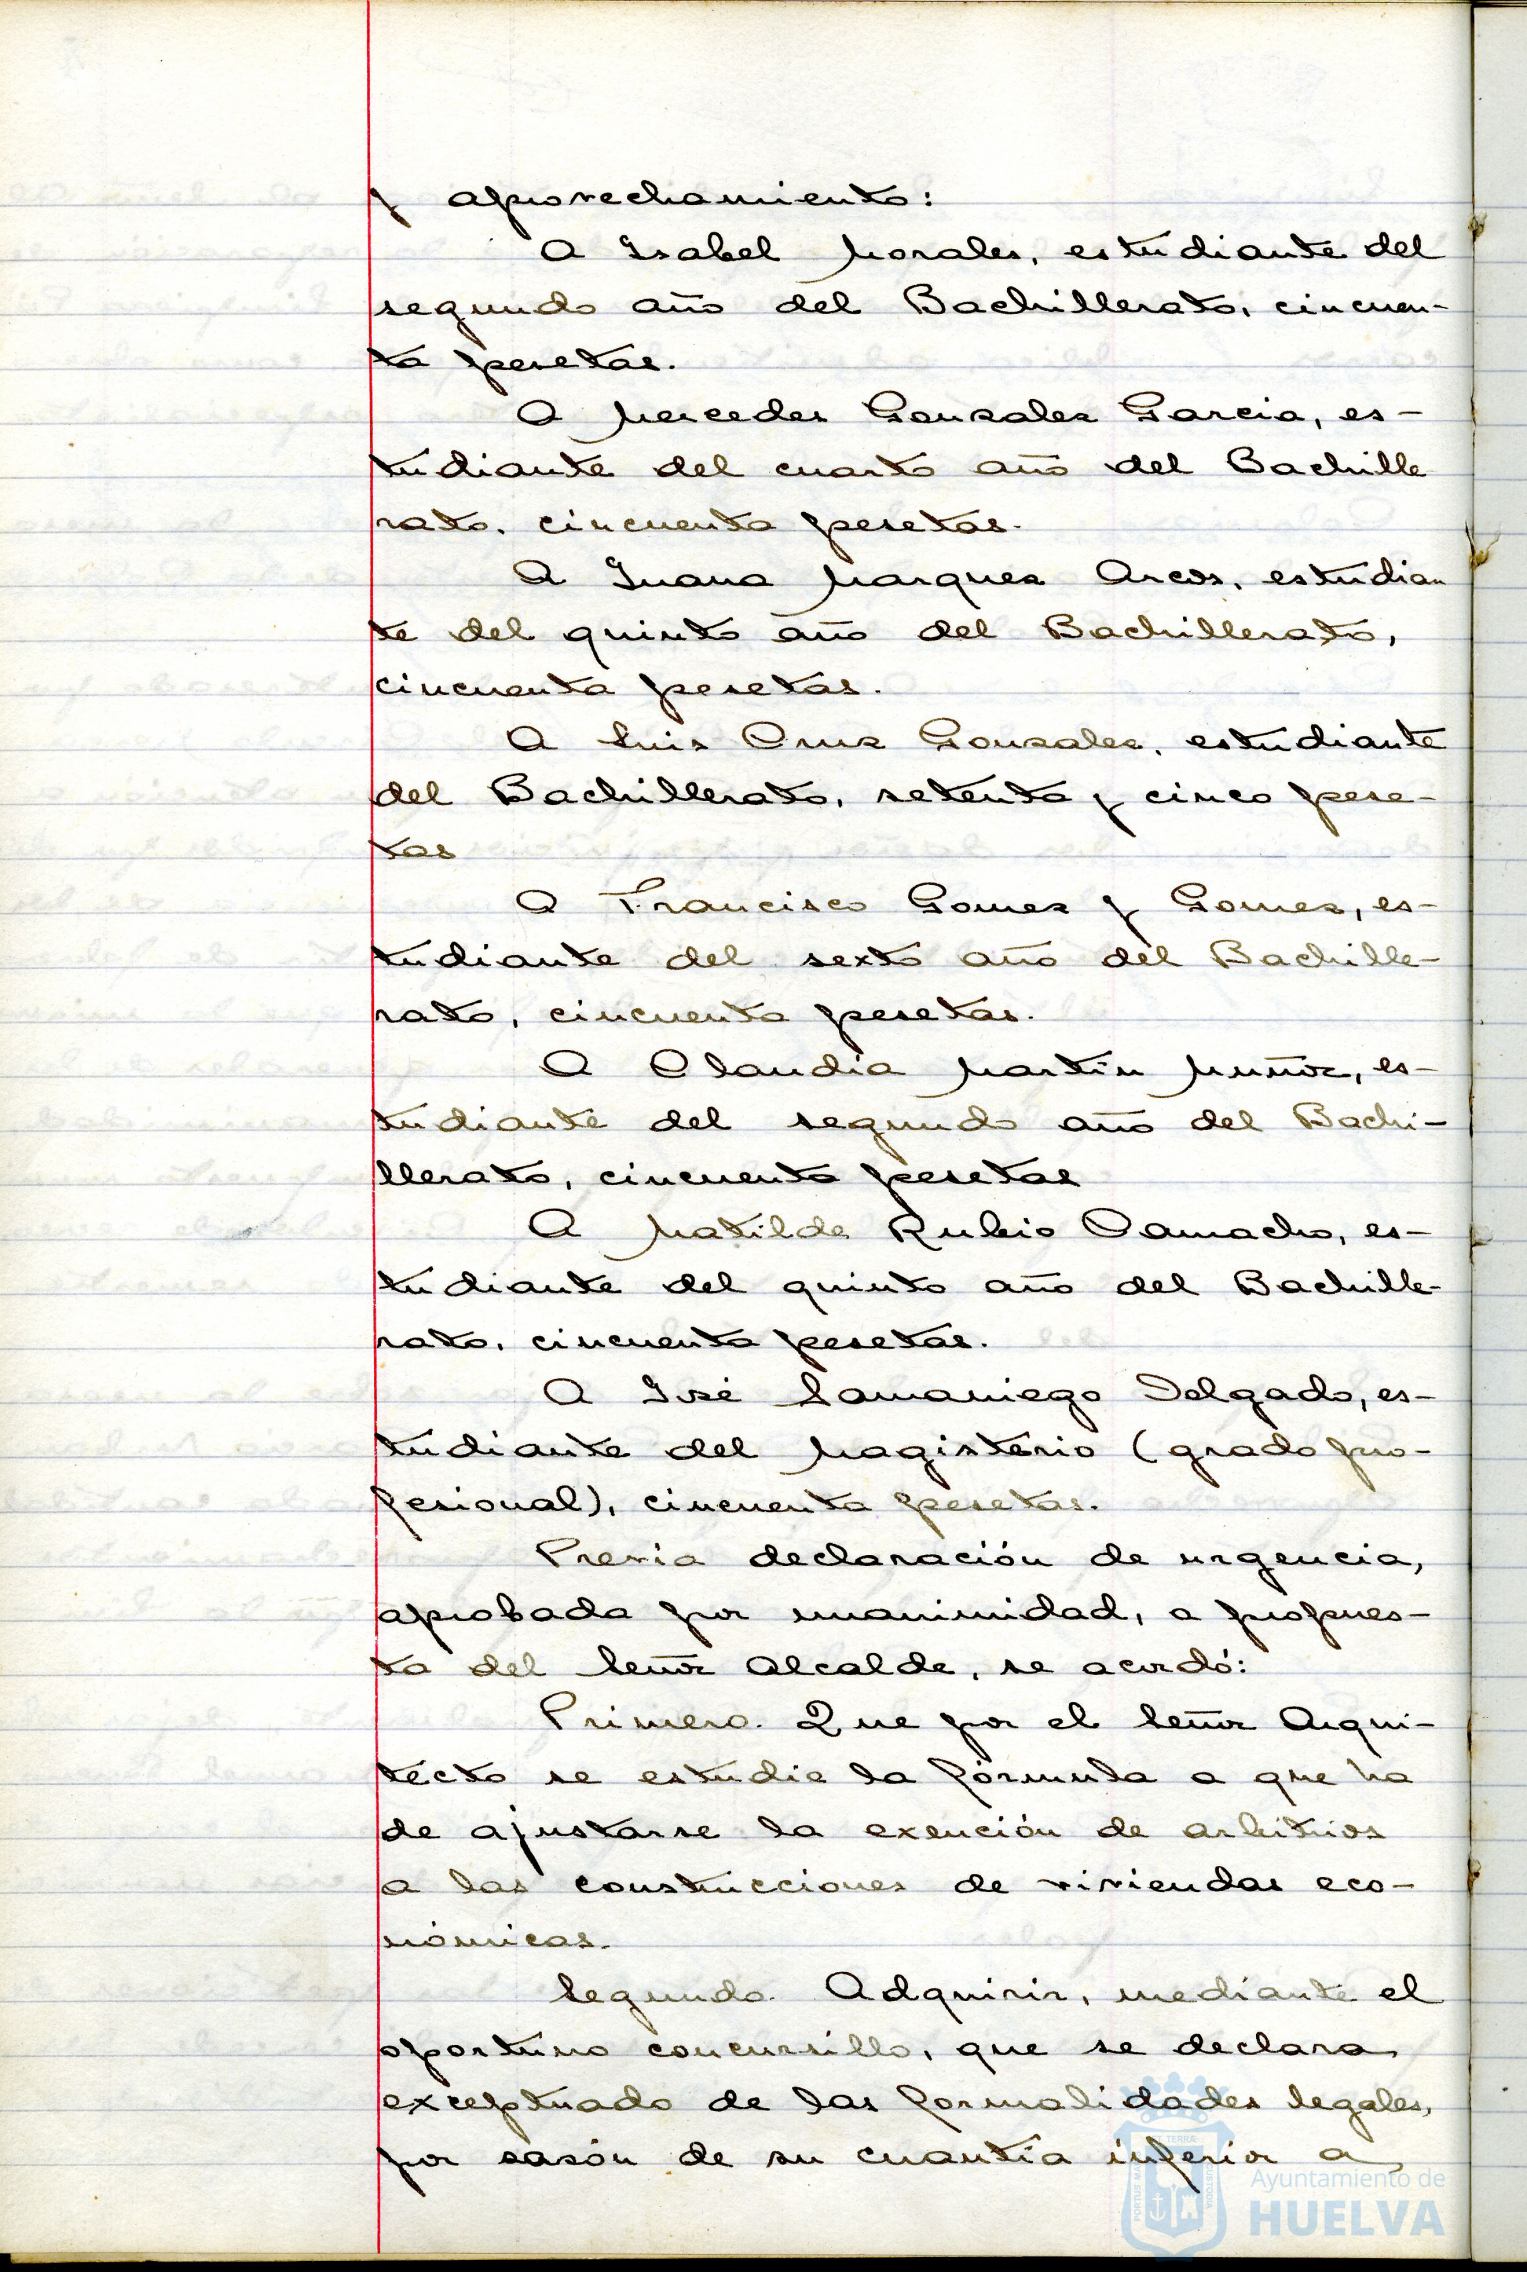 y aprovechamiento:
A Isabel Morales, estudiante del
segundo año del Bachillerato, cincuen-
ta pesetas.
A Mercedes Gonzalez Garcia, es-
tudiante del cuarto año del Bachille
rato, cincuenta pesetas.
A Juana Marquez Arcos, estudian
te del quinto año del Bachillerato,
cincuenta pesetas.
A Luis Cruz Gonzalez, estudiante
del Bachillerato, setenta y cinco pese-
tas
A Francisco Gomez y Gomez, es-
tudiante del sexto año del Bachille-
rato, cincuenta pesetas.
A Claudia Martín Muñoz, es-
tudiante del segundo año del Bachi-
llerato, cincuenta pesetas
A Matilde Rubio Camacho, es-
tudiante del quinto año del Bachille-
rato, cincuenta pesetas.
A José Samaniego Delgado, es-
tudiante del Magisterio (grado pro-
fesional), cincuenta pesetas.
Previa declaración de urgencia,
aprobada por unanimidad, a propues-
ta del Señor Alcalde, se acordó:
Primero. Que por el Señor Arqui-
tecto se estudie la fórmula a que ha
de ajustarse la exención de arbitrios
a las construcciones de viviendas eco-
nómicas.
Segundo. Adquirir, mediante el
oportuno concursillo, que se declara
exceptuado de las formalidades legales,
por razón de su cuantía inferior a
Ayuntamiento de
HUELVA